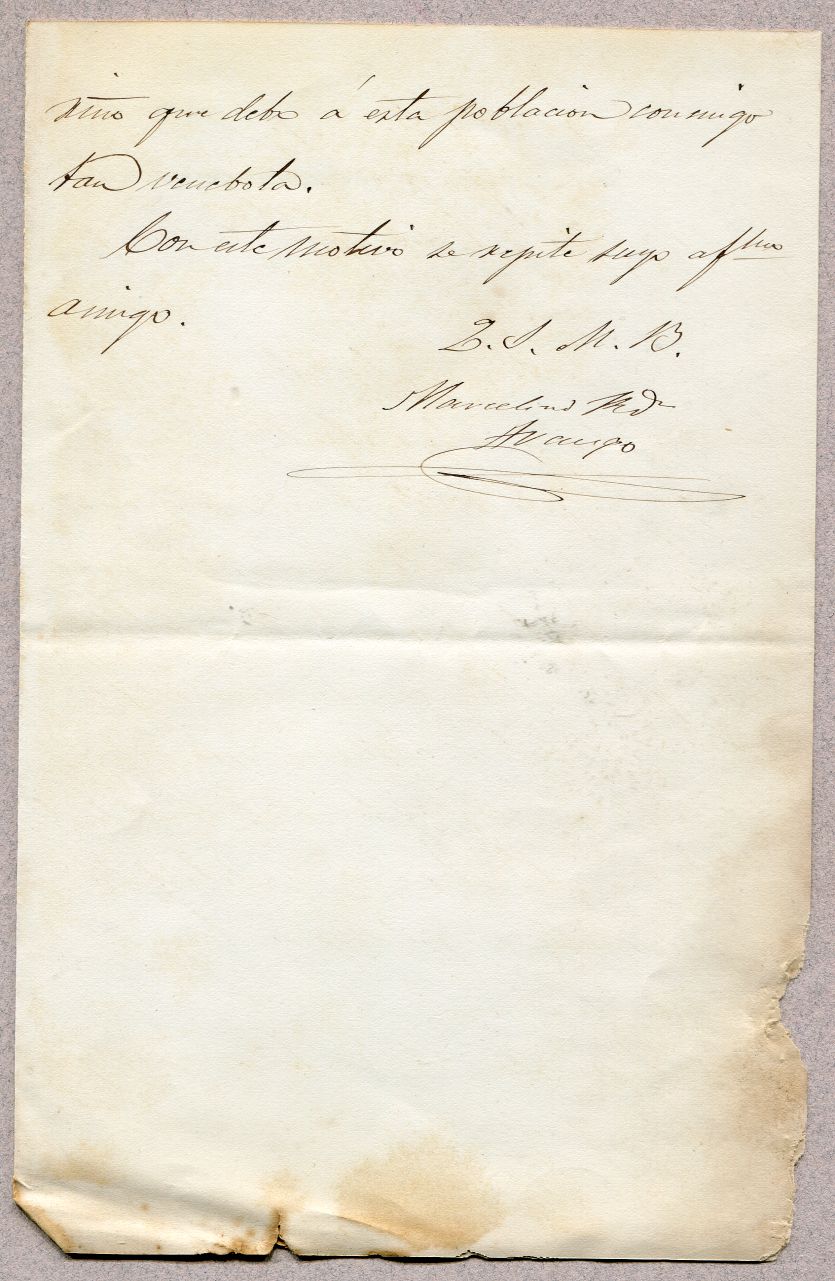 riño que debo á esta poblacion conmigo
tan venebola.
Con este motivo se repite suyo affmo
amigo.
Q. S. M. B.
Marcelino Rdz
Arango